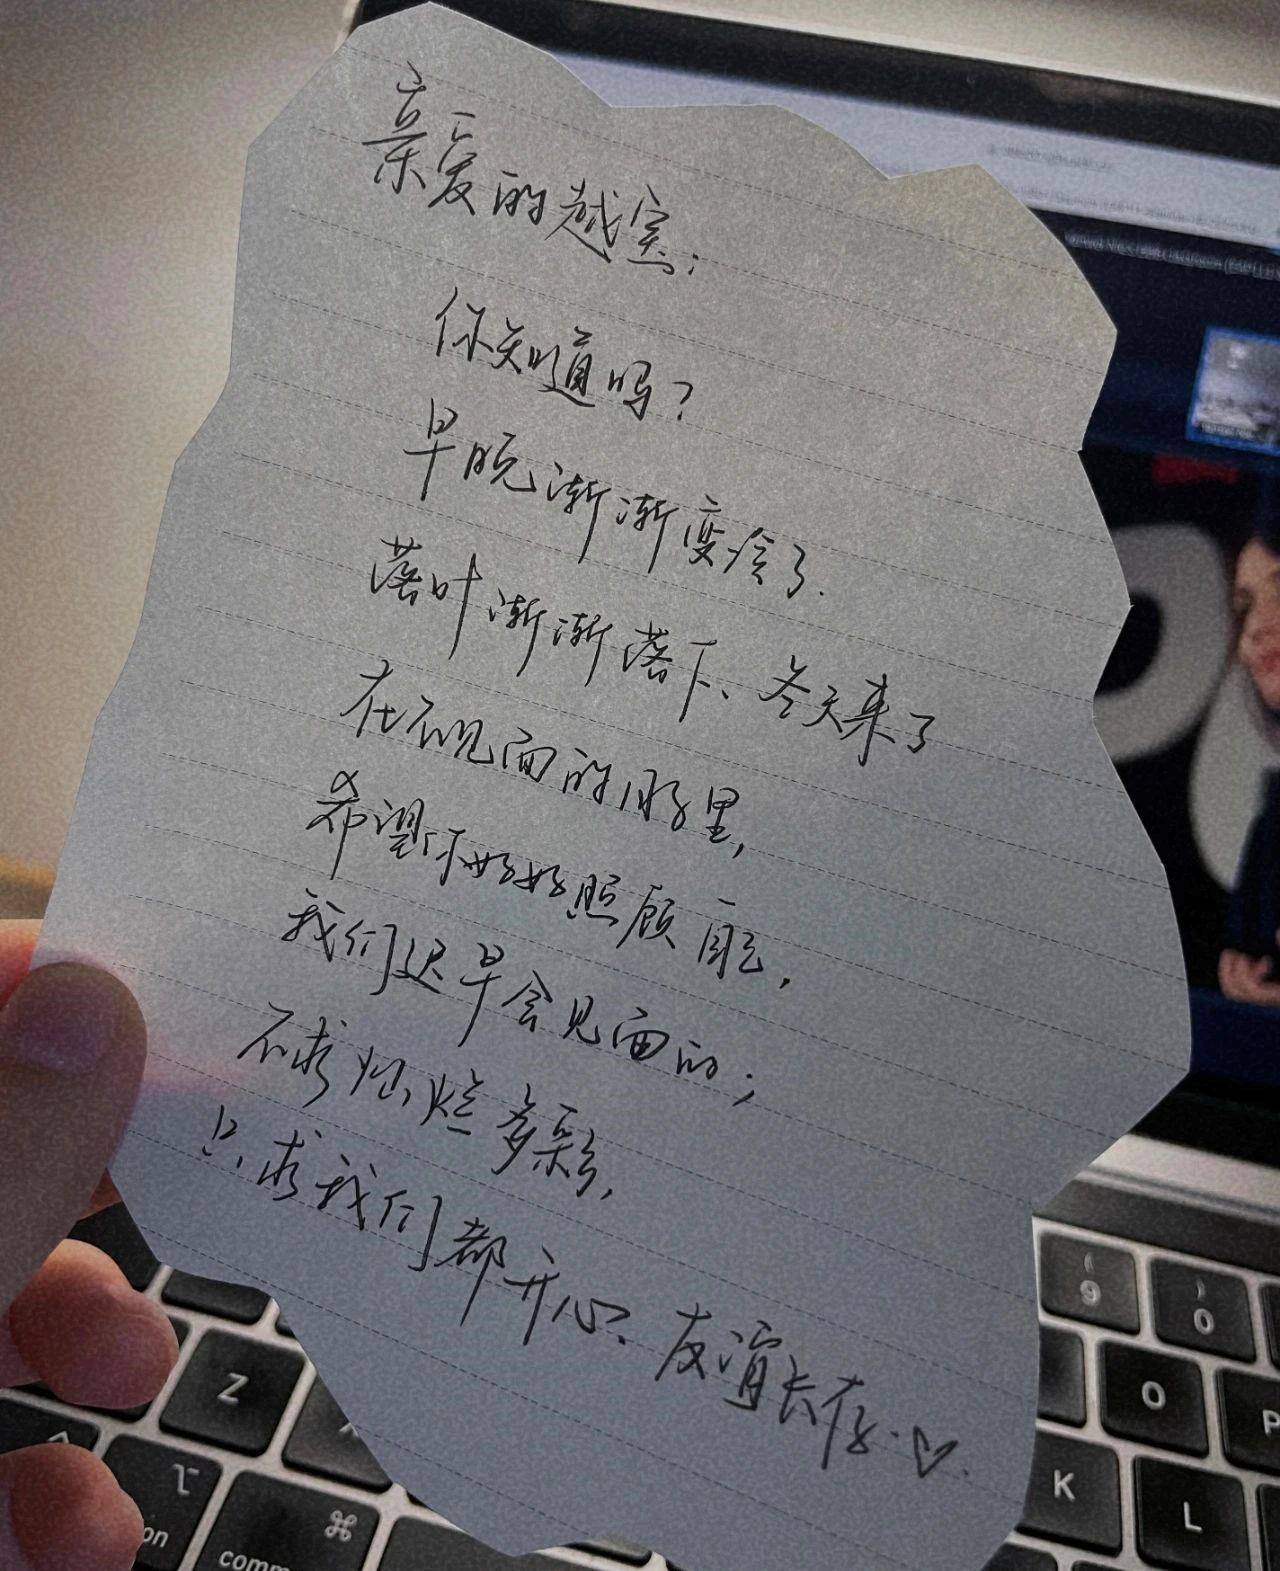 亲爱的越寒:
你知道吗?
早晚渐渐变冷了.
落叶渐渐落下、冬天来了
在不见面的日子里,
希望你好好照顾自己.
我们迟早会见面的;
不求灿烂多彩,
只求我们都开心. 友谊长存.♡.
9
0
Z
O
P
K
L
⌥
⌘